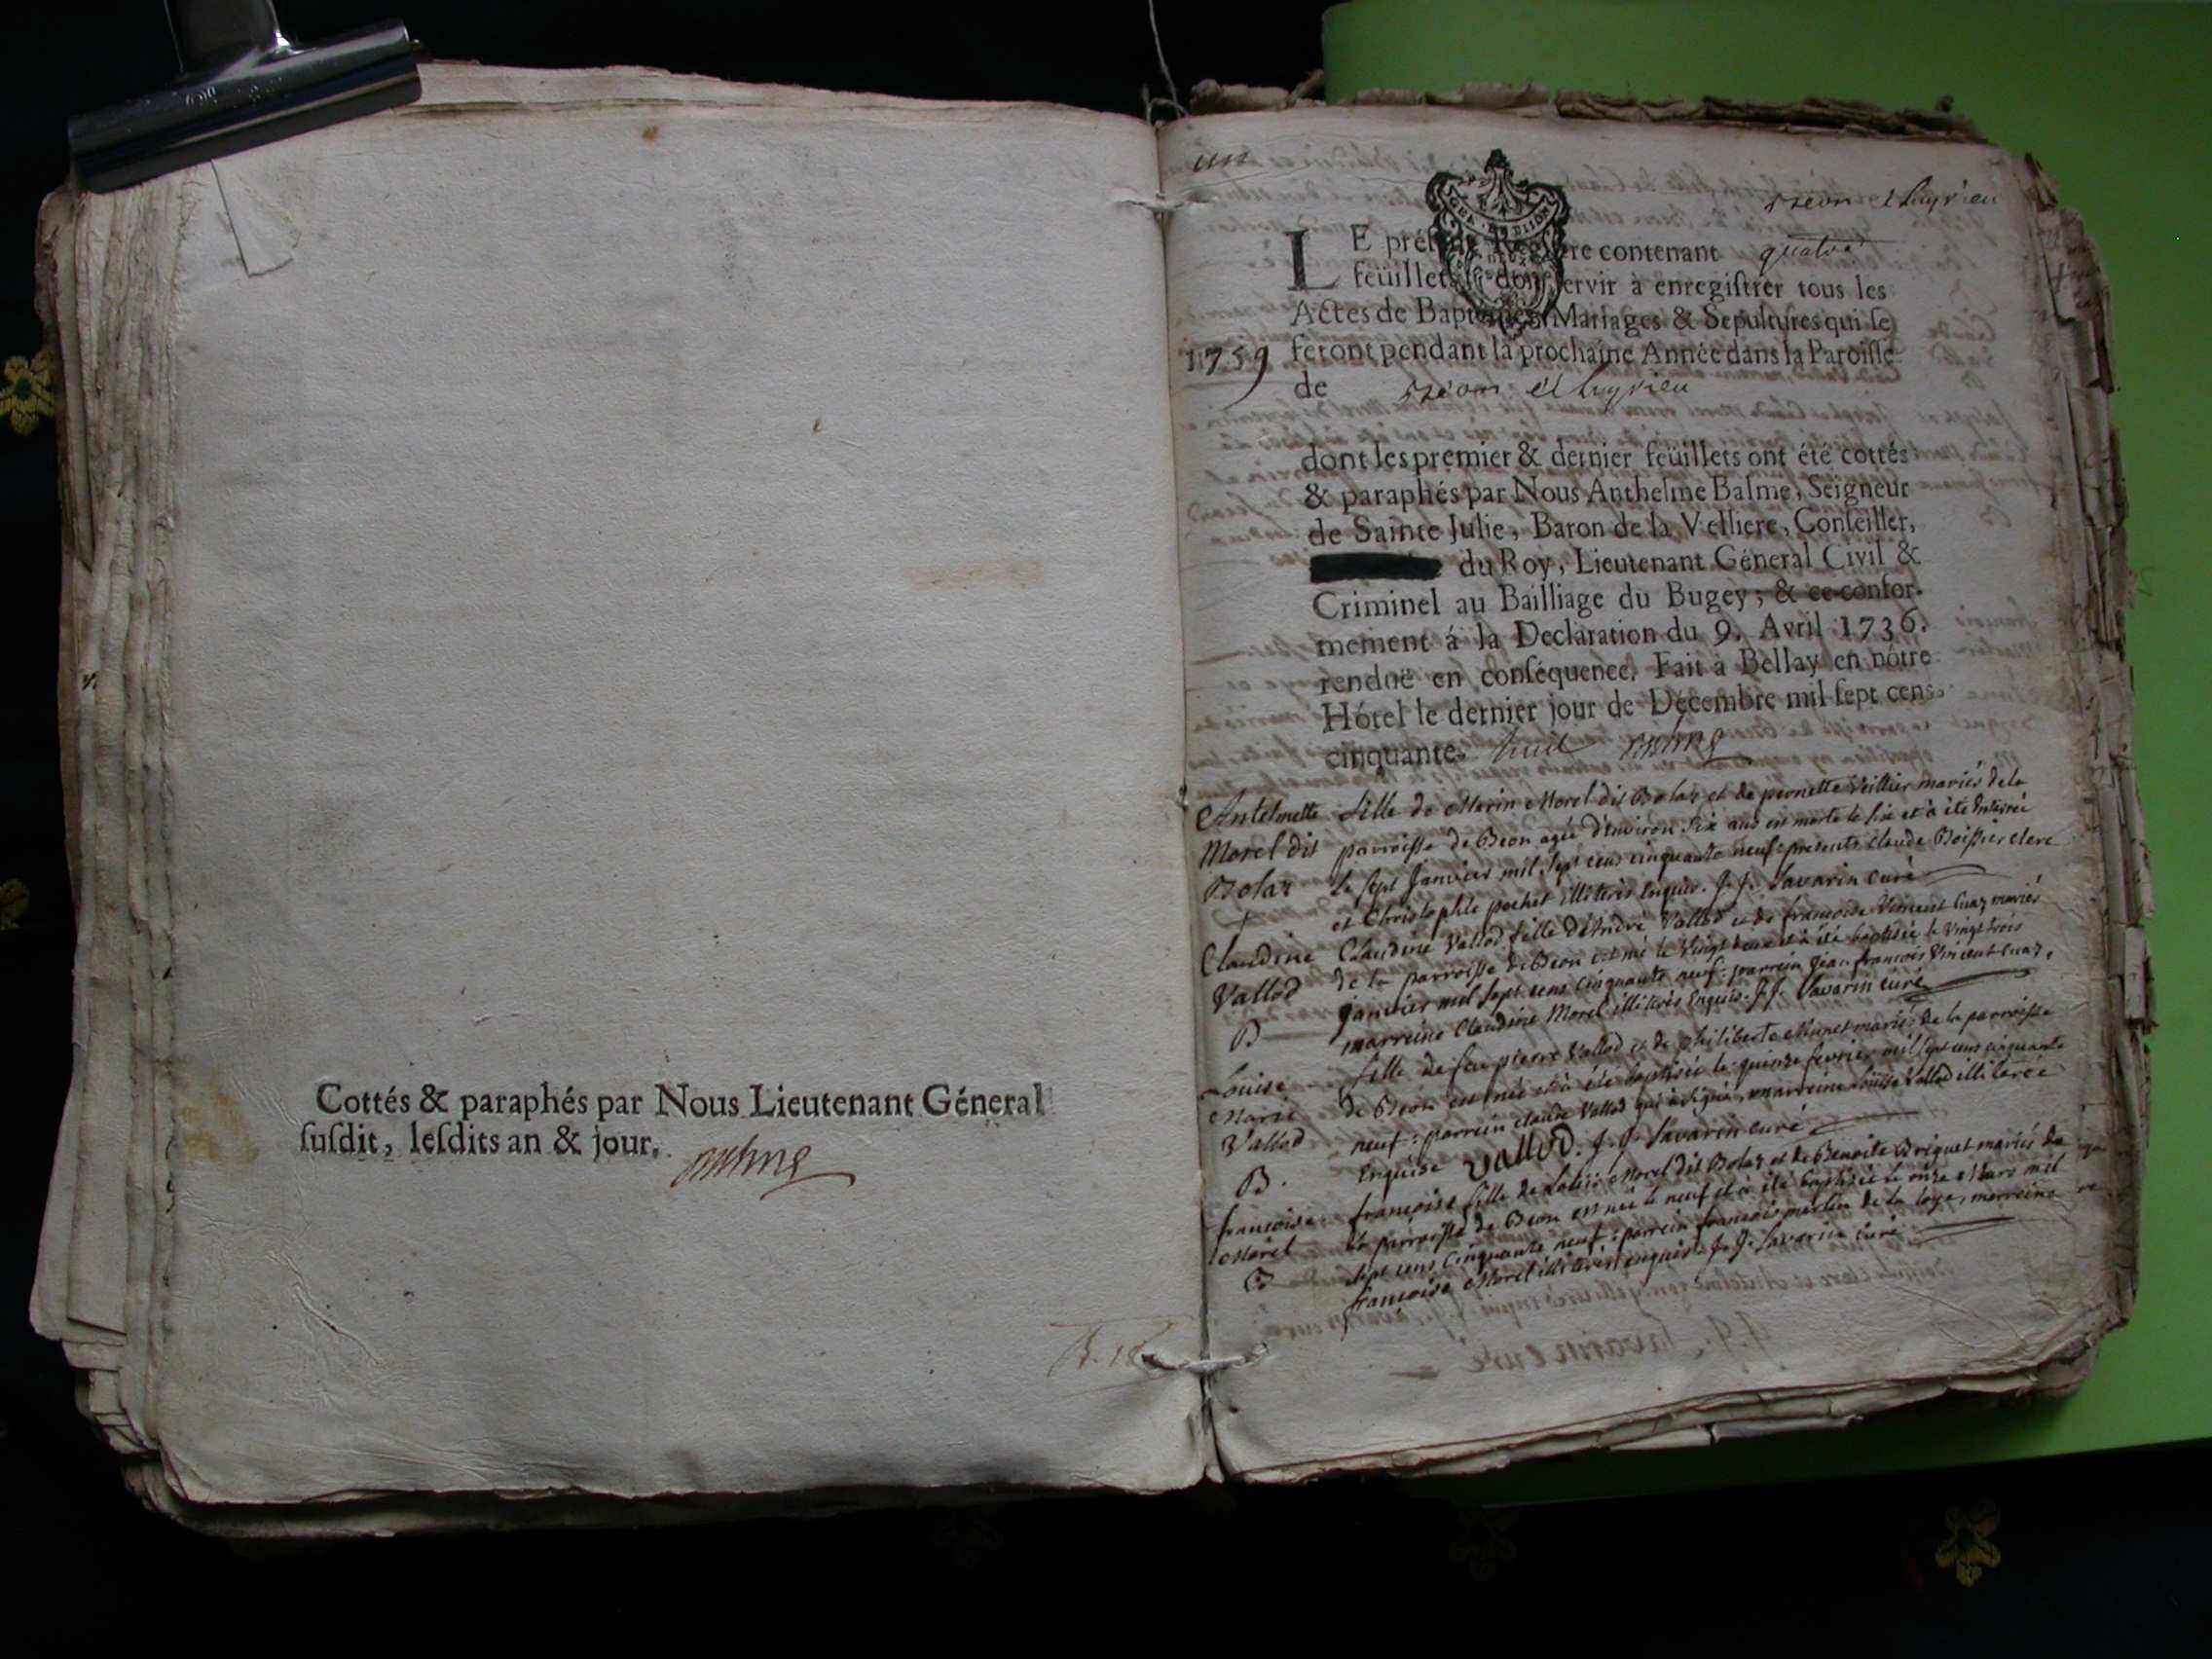 Cottés & paraphés par Nous Lieutenant Géneral
ſuſdit, leſdits an & jour.
un
Beon et Luyrieu
LE préſent Regiſtre contenant quatre
feüillets doit ſervir à enregiſtrer tous les
Actes de Baptêmes, Mariages & Sepultures qui ſe
1759 feront pendant la prochaine Année dans la Paroiſſe
de Beon et Luyrieu
dont les premier & dernier feüillets ont été cottés
& paraphés par Nous Anthelme Balme, Seigneur
de Sainte Julie, Baron de la Velliere, Conſeiller,
du Roy, Lieutenant Géneral Civil &
Criminel au Bailliage du Bugey; & ce confor-
mement á la Declaration du 9. Avril 1736.
renduë en conſéquence. Fait à Bellay en nôtre
Hótel le dernier jour de Décembre mil ſept cens
cinquante huit
Antelmette fille de Marin Morel dit Bolaz et de pernette Veillier mariés de la
Morel dit parroisse de Beon agée d'environ six ans est morte le six et à été Enterrée
Bolaz le sept Janvier mil sept cens cinquante neuf: presents claude Boissier clerc
et Christophle pochet illiterés Enquis. J. J. Savarin curé
Claudine Claudine Vallod fille d'André Vallod et de francoise Vincent Cuaz mariés
Vallod de la parroisse de Beon est née le Vingt deux et à été baptisée le Vingt trois
Janvier mil sept cens cinquante neuf: parrein Jean francois Vincent Cuaz,
B marreine Claudine Morel illiterés Enquis. J. J. Savarin curé
Louise fille de feu pierre Vallod et de philiberte Munet mariés de la parroisse
Marie de Beon est née et à été baptisée le quinze fevrier mil sept cens cinquante
Vallod neuf: parrein claude Vallod qui à signé, marreine Louïse Vallod illiterée
B. Enquise Vallod. J. J. Savarin curé
francoise francoise fille de Morel dit Bolaz et de Benoite Briguet mariés de
Morel la parroisse de Beon est née le neuf et à été baptisée le onze Mars mil
B sept cens cinquante neuf: parrein francois merlin de la loye, marreine
francoise Morel illiterés enquis. J. J. Savarin curé